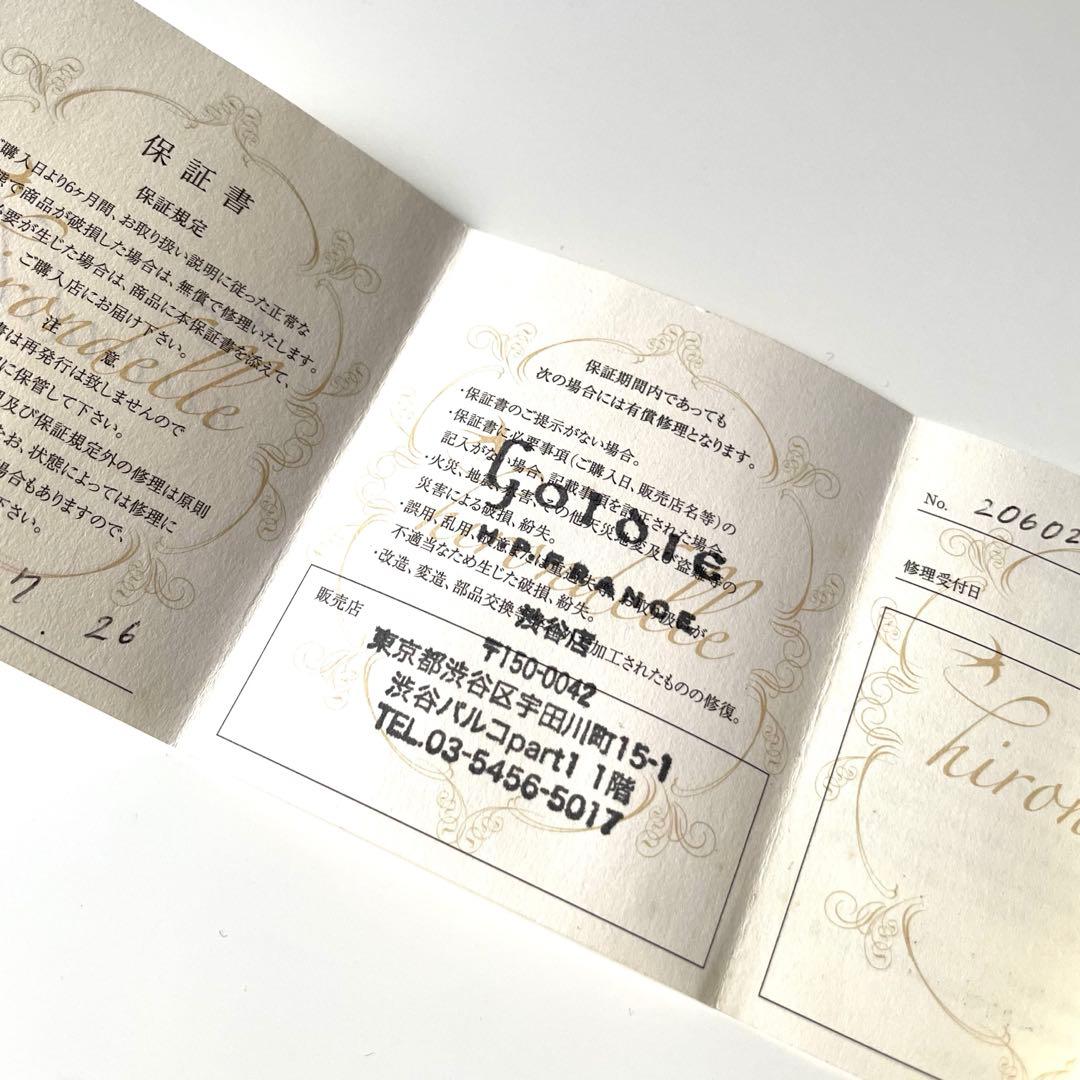 保証書
保証規定
ご購入日より6ヶ月間、お取り扱い説明に従った正常な
態で商品が破損した場合は、無償で修理いたします。
必要が生じた場合は、商品に本保証書を添えて、
ご購入店にお届け下さい。
注 意
書は再発行は致しませんので
に保管して下さい。
及び保証規定外の修理は原則
なお、状態によっては修理に
場合もありますので、
下さい。
7 . 26
hirondelle
保証期間内であっても
次の場合には有償修理となります。
・保証書のご提示がない場合。
・保証書に必要事項(ご購入日、販売店名等)の
記入がない場合、記載事項を訂正された場合
・火災、地震、 害 の他天災地変及び盗難等の
災害による破損、紛失。
・誤用、乱用、故意または 扱 が
不適当なため生じた破損、紛失。
・改造、変造、部品交換 加工されたものの修復。
goldie
H.P.FRANCE
渋谷店
販売店
〒150-0042
東京都渋谷区宇田川町15-1
渋谷パルコpart1 1階
TEL.03-5456-5017
hirondelle
No. 20602
修理受付日
hiron